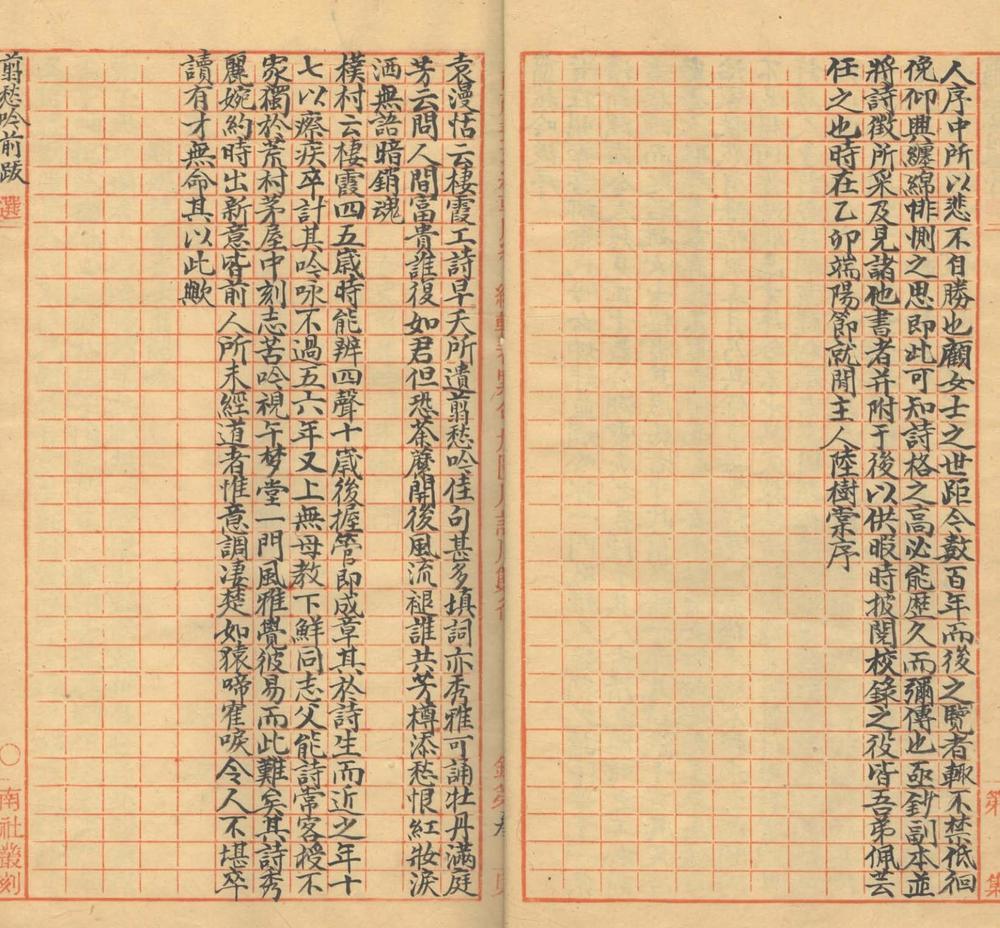 人序中所以悲不自勝也顧女士之世距今數百年而後之覽者輒不禁低徊
俛仰興纏綿悱惻之思即此可知詩格之高必能歷久而彌傳也亟鈔副本並
將詩徵所采及見諸他書者并附于後以供暇時披閱校錄之役皆吾弟佩芸
任之也時在乙卯端陽節就閒主人陸樹棠序
袁漫恬云棲霞工詩早夭所遺翦愁吟佳句甚多填詞亦秀雅可誦牡丹滿庭
芳云問人間富貴誰復如君但恐荼䕷開後風流褪誰共芳樽添愁恨紅妝淚
洒無語暗銷魂
樸村云棲霞四五歲時能辨四聲十歲後握管即成章其於詩生而近之年十
七以瘵疾卒計其吟咏不過五六年又上無母教下鮮同志父能詩常客授不
家獨於荒村茅屋中刻志苦吟視午梦堂一門風雅覺彼易而此難矣其詩秀
麗婉約時出新意皆前人所未經道者惟意調凄楚如猿啼寉唳令人不堪卒
讀有才無命其以此歟
翦愁吟前跋
選
南社叢刻
第 集